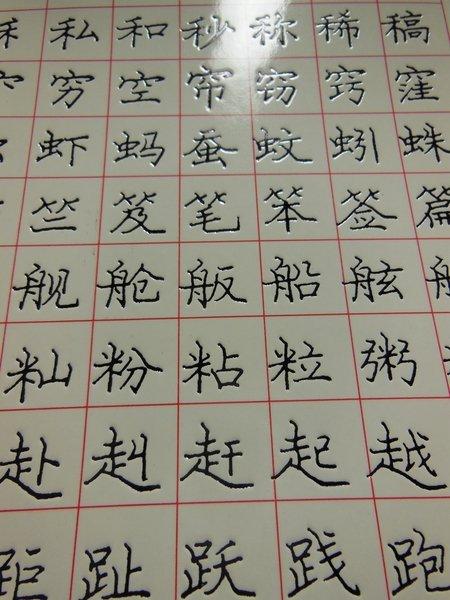 私 和 秒 称 稀 稿
穷 空 帘 窃 窍 窪
虾 蚂 蚕 蚊 蚓 蛛
竺 笈 笔 笨 签 篇
舰 舱 舨 船 舷
籼 粉 粘 粒 粥
赴 赳 赶 起 越
距 趾 跃 践 跑